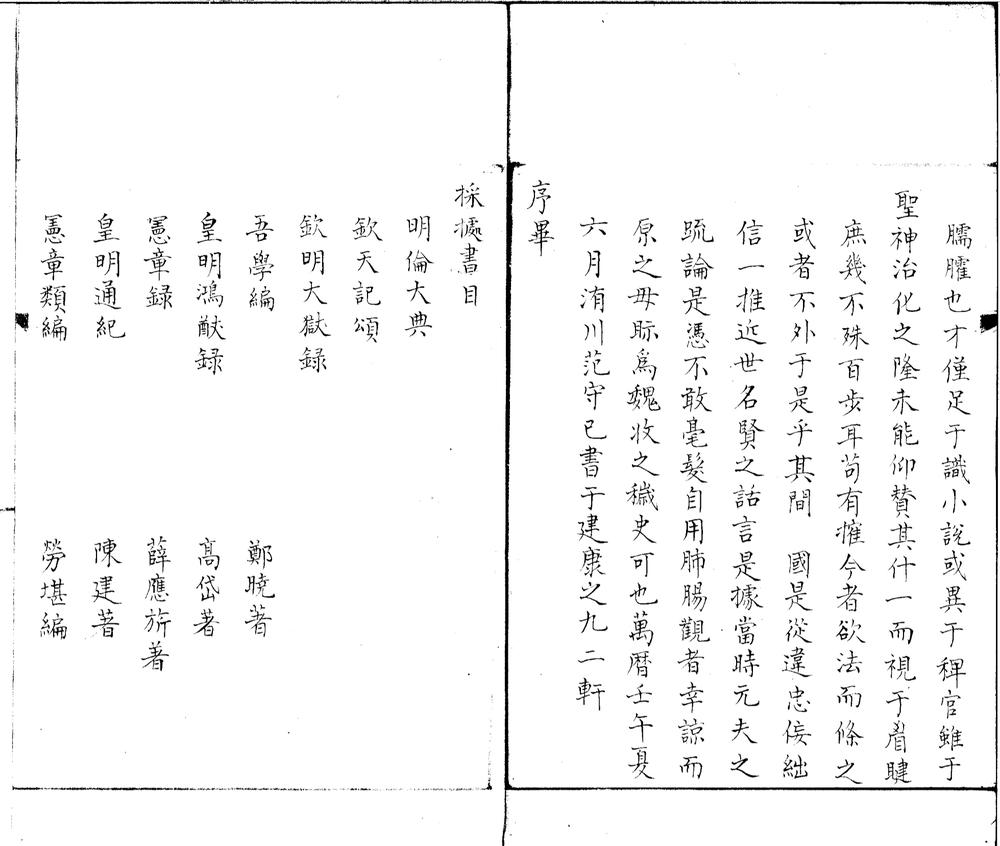 臑臛也才僅足于識小說或異于稗官雖于
聖神治化之隆未能仰贊其什一而視于
庶幾不殊百步耳苟有攉今者欲法而條之
或者不外于是乎其間　國是從違忠佞絀
信一推近世名賢之話言是據當時元夫之
疏論是憑不敢毫髮自用肺腸觀者幸諒而
原之毋眎爲魏收之穢史可也萬曆壬午夏
六月洧川范守已書于建康之九二軒
序畢
採攄書目
明倫大典
欽天記頌
欽明大獄録
吾學編　鄭曉著
皇明鴻猷録　高岱著
憲章録　薛應旂著
皇明通紀　陳建著
憲章類編　勞堪編